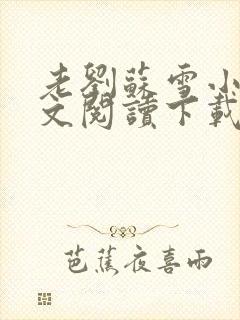 老劉蘇雪小
文閱讀下載
芭蕉夜喜雨